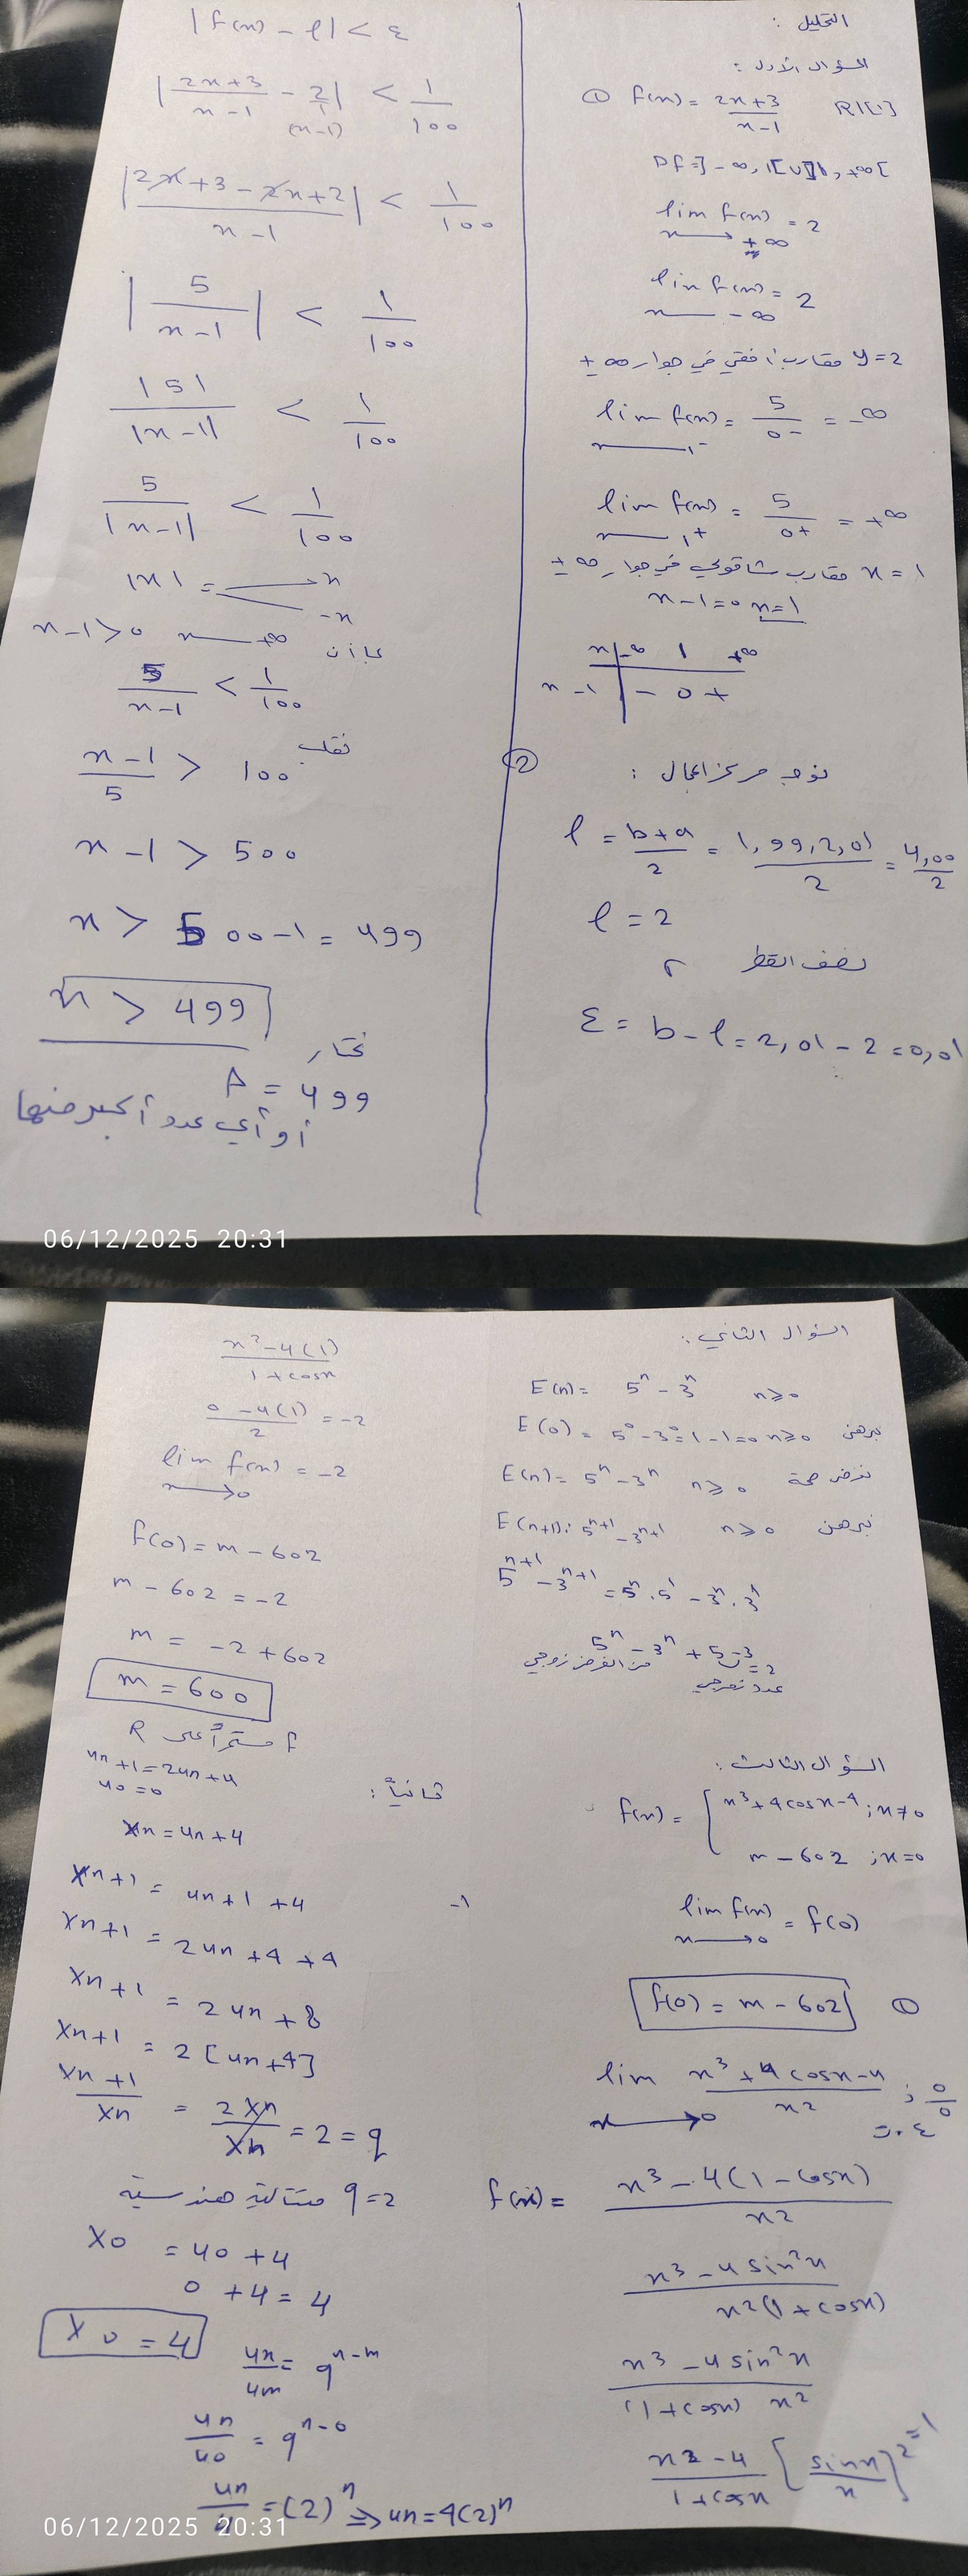 التحليل :
السؤال الأول :
① f(x) = 2x+3 / x-1 R\{1}
Df = ]-∞, 1[ U ]1, +∞[
lim f(x) = 2
x → +∞
lim f(x) = 2
x → -∞
y = 2 مقارب أفقي في جوار ±∞
lim f(x) = 5 / 0- = -∞
x → 1-
lim f(x) = 5 / 0+ = +∞
x → 1+
x = 1 مقارب شاقولي في جوار ±∞
x-1=0 x=1
x | -∞ 1 +∞
x-1 | - 0 +
② نوجد مركز المجال :
l = b+a / 2 = 1,99, 2,01 / 2 = 4,00 / 2
l = 2
نصف القطر r
ε = b - l = 2,01 - 2 = 0,01
|f(x) - l| < ε
| 2x+3 / x-1 - 2 / 1 | < 1 / 100
(x-1)
| 2x+3-2x+2 / x-1 | < 1 / 100
| 5 / x-1 | < 1 / 100
|5| / |x-1| < 1 / 100
5 / |x-1| < 1 / 100
|x| = x
-x
x-1>0 x → +∞ بما أن
5 / x-1 < 1 / 100
x-1 / 5 > 100 نقلب
x-1 > 500
x > 500-1 = 499
x > 499
نختار
A = 499
أو أي عدد أكبر منها
06/12/2025 20:31
السؤال الثاني :
E(n) = 5^n - 3^n n≥0
E(0) = 5^0 - 3^0 = 1-1=0 n≥0 نبرهن
E(n) = 5^n - 3^n n≥0 نفرض صحة
E(n+1): 5^n+1 - 3^n+1 n≥0 نبرهن
5^n+1 - 3^n+1 = 5^n . 5^1 - 3^n . 3^1
5^n - 3^n + 5-3
=2
من الفرض زوجي
عدد زوجي
السؤال الثالث :
f(x) = { x³+4cosx-4 ; x≠0
m-602 ; x=0
lim f(x) = f(0)
x → 0
f(0) = m-602 ①
lim x³+4cosx-4 / x² ; 0/0
x → 0 ح.ع.ت
f(x) = x³-4(1-cosx) / x²
x³-4sin²x / x²(1+cosx)
x³-4sin²x / (1+cosx) x²
x²-4 / 1+cosx [ sinx / x ]² =1
x²-4(1) / 1+cosx
0-4(1) / 2 = -2
lim f(x) = -2
x → 0
f(0) = m-602
m-602 = -2
m = -2+602
m = 600
f مستمر على R
ثانياً :
un+1 = 2un+4
u0=0
xn = un+4
xn+1 = un+1 +4 -1
xn+1 = 2un+4+4
xn+1 = 2un+8
xn+1 = 2[un+4]
xn+1 / xn = 2xn / xn = 2 = q
q=2 متتالية هندسية
x0 = u0+4
0+4=4
x0 = 4
un / um = q^n-m
un / u0 = q^n-0
un / 4 = (2)^n ⇒ un = 4(2)^n
06/12/2025 20:31